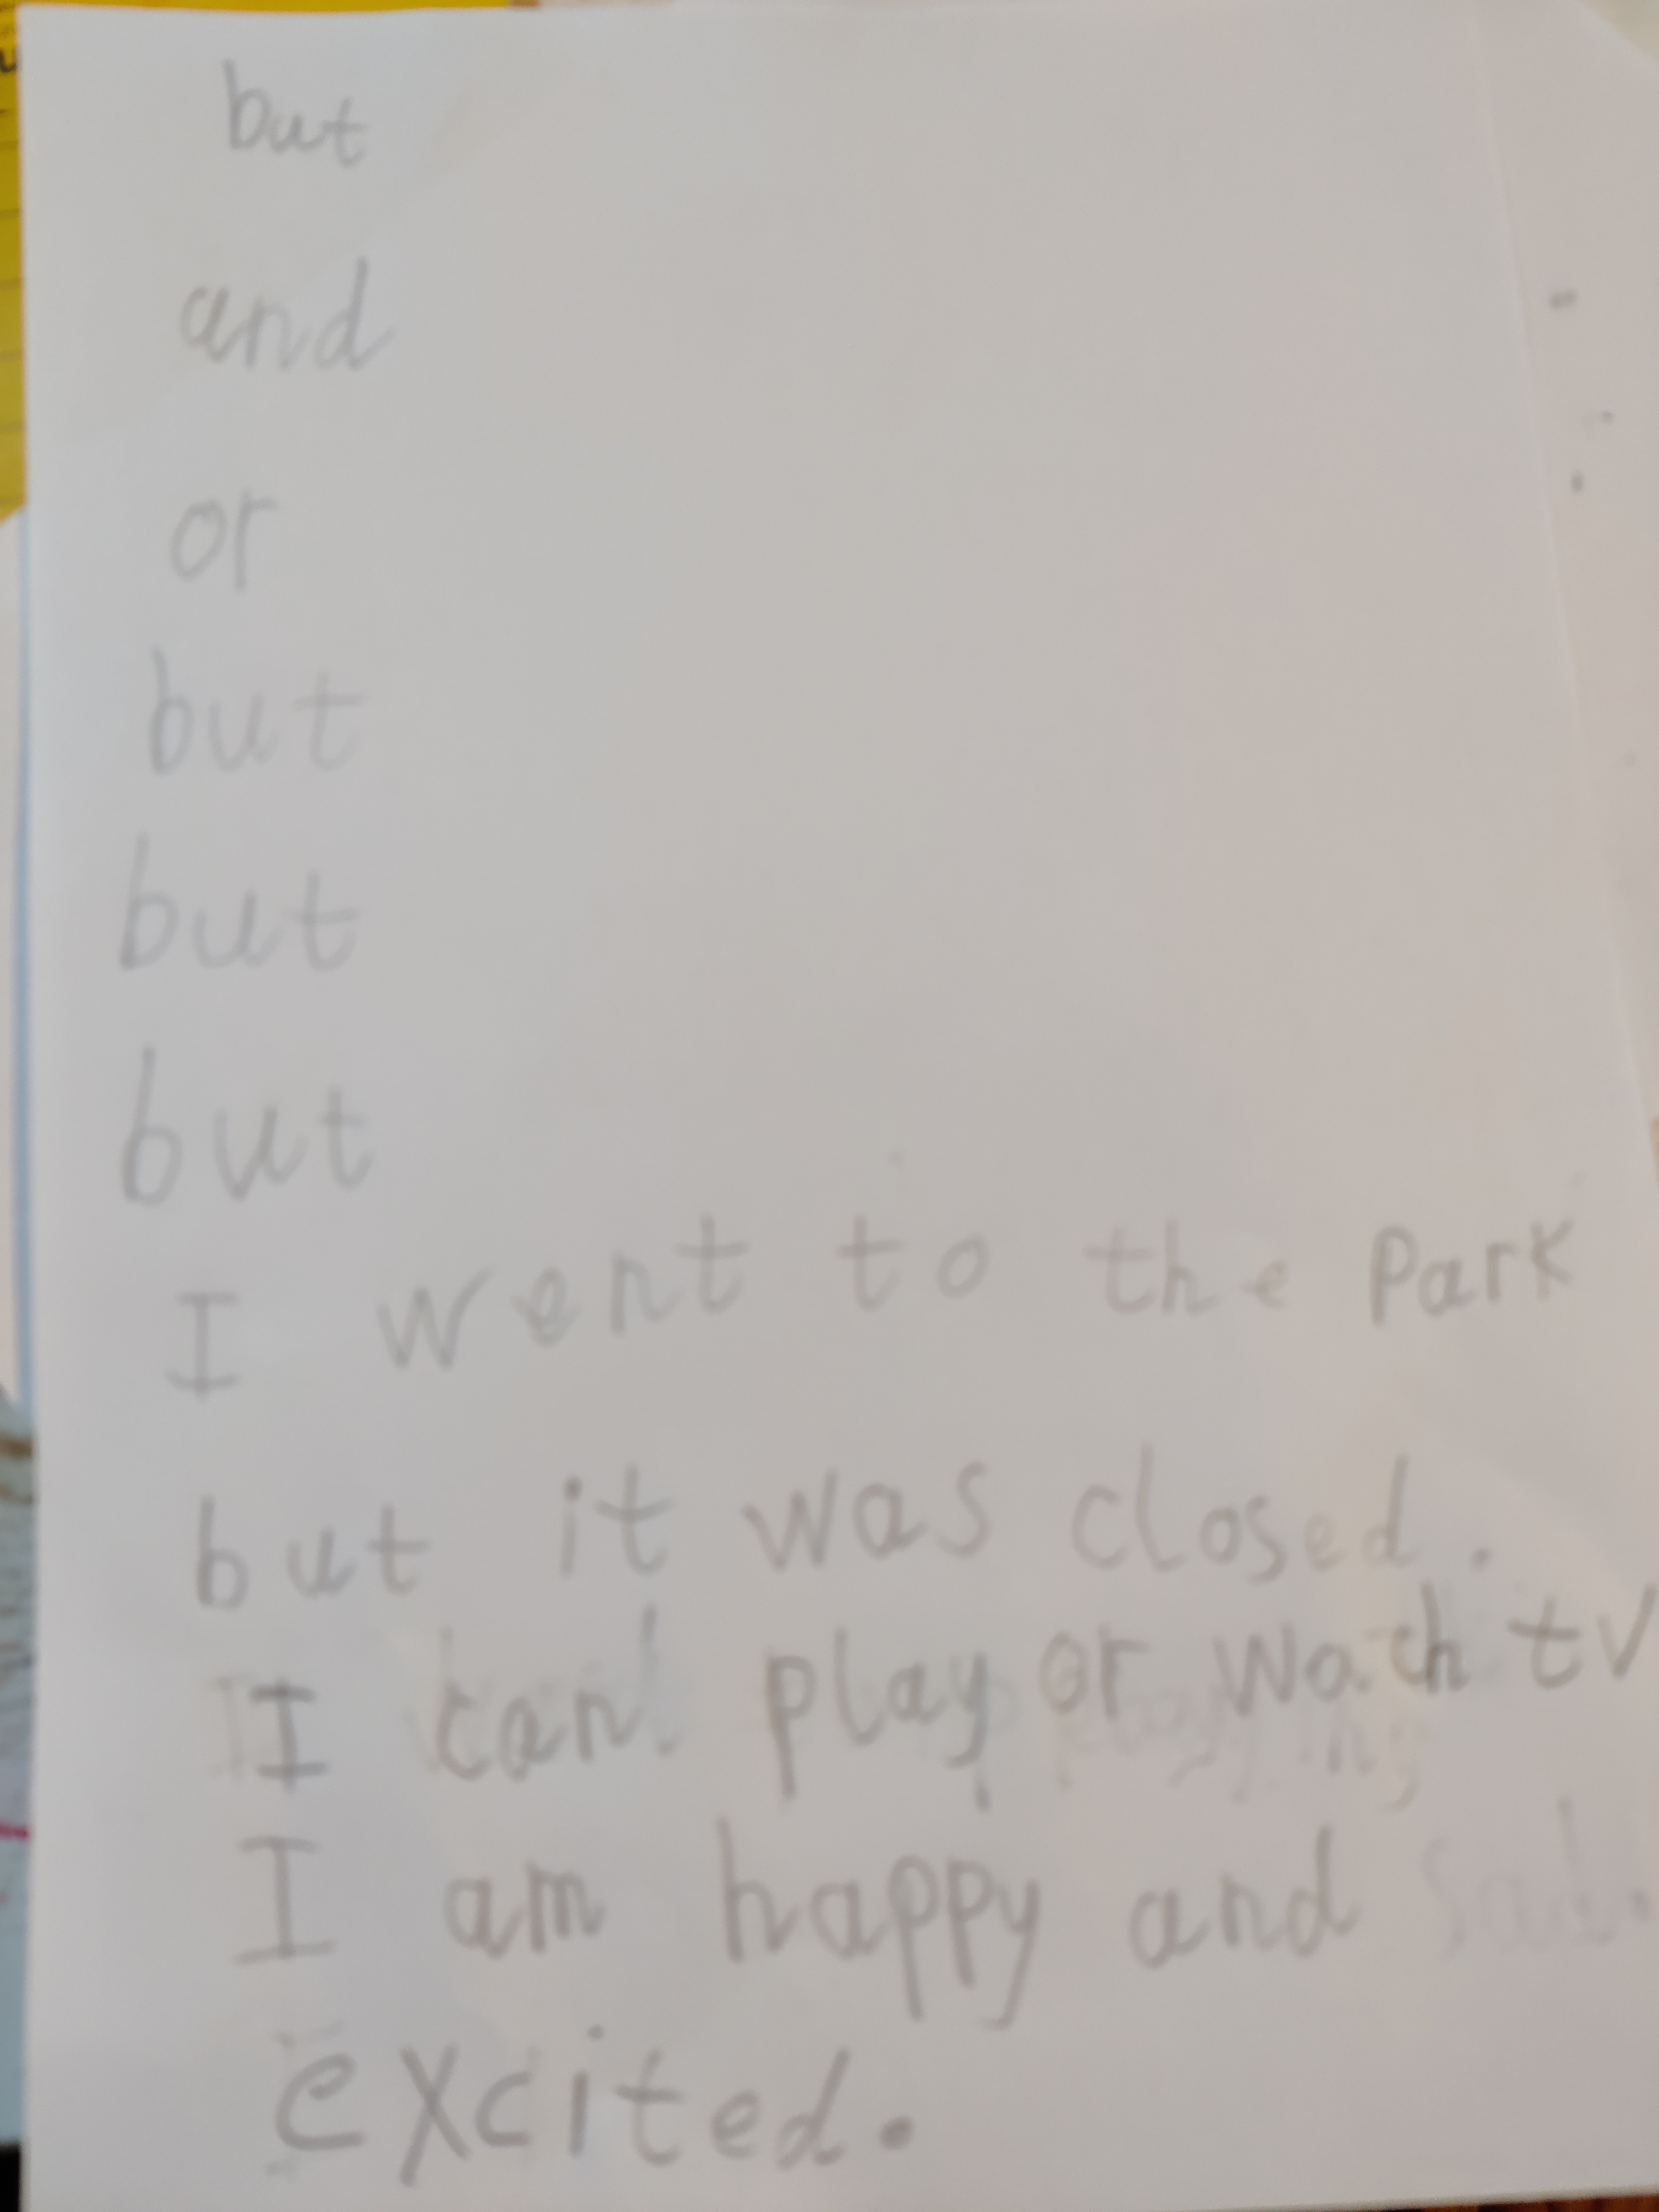 but
and
or
but
but
but
I went to the Park
but it was closed.
I can play or wach tv
I am happy and
excited.